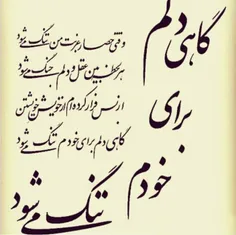 گاهی دلم
برای
خودم
تنگ می‌شود
وقتی حصار غربت من تنگ می‌شود
هر لحظه بین عقل و دلم جنگ می‌شود
از بس فرار کرده‌ام از خویش خویشتن
گاهی دلم برای خودم تنگ می‌شود